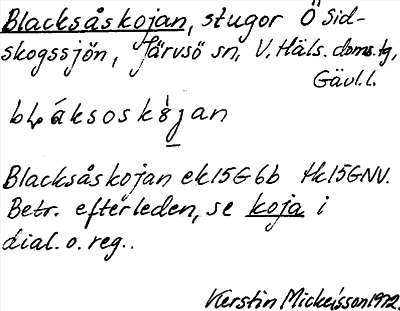 Blacksåskojan, stugor Ö Sid-
skogssjön, Järvsö sn, V. Häls. doms.tg,
Gävl.l.
Blacksåskojan ek 15G 6b tk 15G NV.
Betr. efterleden, se koja i
dial. o. reg..
Kerstin Mickelsson 1972.